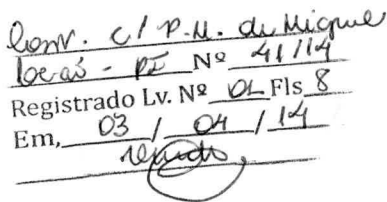 Conv. c/ P.M. de Miguel
Nº 41/14
Registrado Lv. Nº 01 Fls 8
Em, 03 / 04 / 14